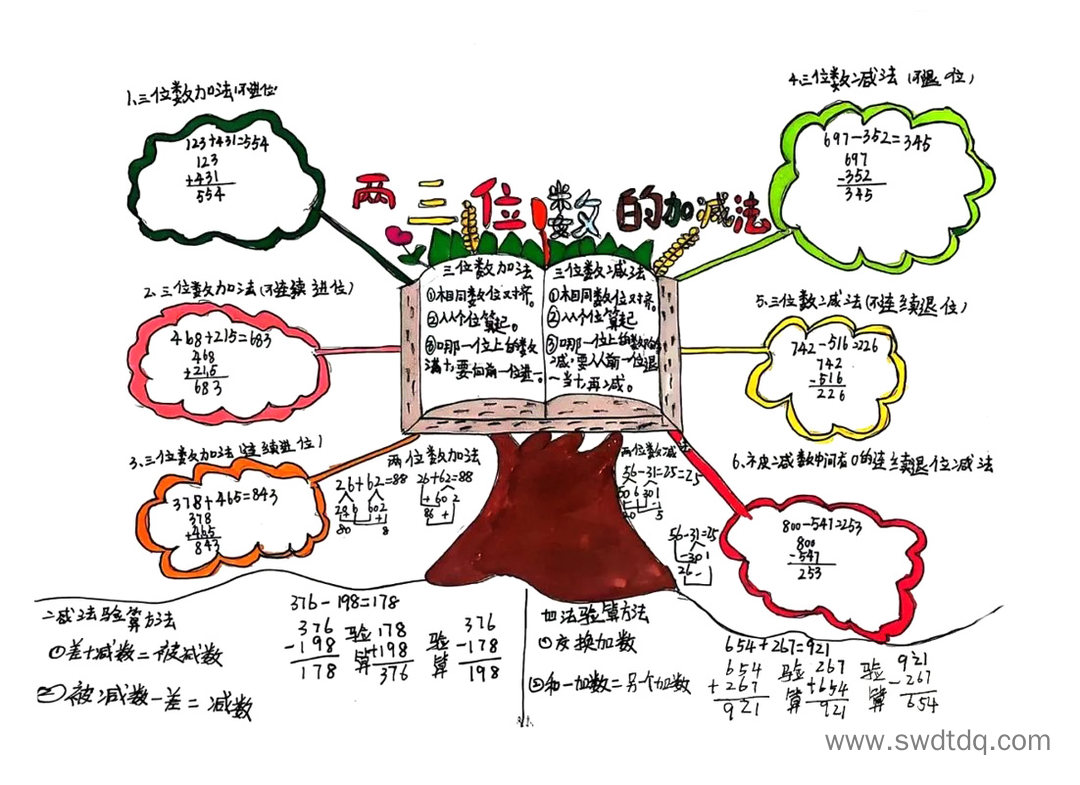 两三位数的加减法
1.三位数加法(不进位)
123+431=554
123
+431
554
2.三位数加法(不连续进位)
468+215=683
468
+215
683
3.三位数加法(连续进位)
378+465=843
378
+465
843
4.三位数减法(不退位)
697-352=345
697
-352
345
5.三位数减法(不连续退位)
742-516=226
742
-516
226
6.不皮减数中间有0的连续退位减法
800-541=253
800
-547
253
三位数加法
①相同数位对齐。
②从个位算起。
③哪一位上的数
满十,要向前一位进一。
三位数减法
①相同数位对齐。
②从个位算起
③哪一位上的数不
减,要从前一位退
一当十,再减。
两位数加法
26+62=88
26+62=88
两位数减法
56-31=25=25
56-31=25
减法验算方法
①差+减数=被减数
②被减数-差=减数
376-198=178
376
-198
178
验算
178
+198
376
验算
376
-178
198
加法验算方法
①交换加数
②和-加数=另个加数
654+267=921
654
+267
921
验算
267
+654
921
验算
921
-267
654
www.swdtdq.com